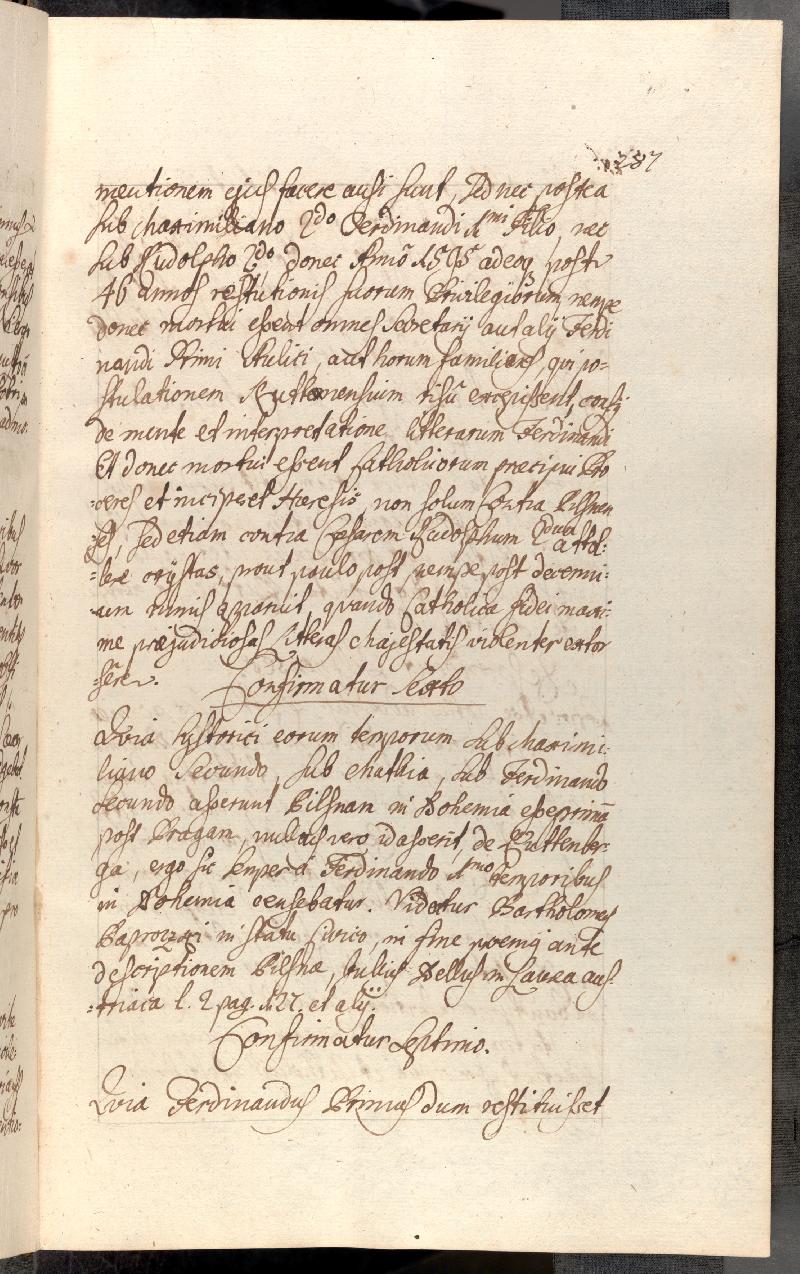 257
mentionem ejus facere ausi sunt, sed nec postea
sub Maximiliano 2do Ferdinandi 1mi Filio, nec
sub Rudolpho 2do, donec Anno 1595 adeoq post
46 annos restitutionis suorum Privilegiorum nempe
donec mortui essent omnes Secretarij aut alij Ferdi
nandi Primi Aulici, authorum familiares, qui po=
stulationem Kuttenensium risu excepissent,
de mente et interpretatione litterarum Ferdinandi
Et donec mortui essent Catholicorum praecipui Pro
=ceres et inciperet Haeresis, non solum Contra Pilsnen
=ses, sed etiam contra Caesarem Rudolphum 2dum attol:
=lere crystas, prout paulo post, nempe post decenni=
=um nimis apparuit, quando Catholica fidei maxi=
me praejuditiosas Litteras Majestatis violenter extor
=sere.
Confirmatur Sexto
Quia Hystorici eorum temporum sub Maximi=
liano Secundo, sub Mathia, sub Ferdinando
Secundo asserunt Pilsnam in Bohemia esse primam
post Pragam, nullus vero id asserit, de Kuttenber=
ga, ergo sic semper à Ferdinando 1mo temporibus
in Bohemia censebatur. Videtur Bartholomeus
Paprozzci in statu Civico, in fine poemij ante
descriptionem Pilsnae, Julius Bellus in Laurea aus=
=triaca l. 2 pag. 127. et alij.
Confirmatur Septimo.
Quia Ferdinandus Primus dum restituisset